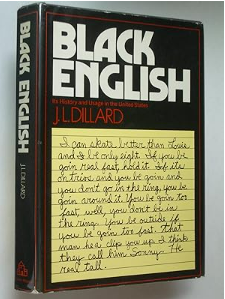 BLACK
ENGLISH
Its History and Usage in the United States
J.L. DILLARD
I can skate better than Louis
and I be only eight. If you be
goin real fast, hold it. If it's
on trios and you be goin and
you don't go in the ring, you be
goin around it. You be goin too
fast, well, you don't be in
the ring. You be outside if
you be goin too fast. That
man he clip you up. I think
they call him Sonny. He
real tall.
BLACK ENGLISH
J.L. DILLARD